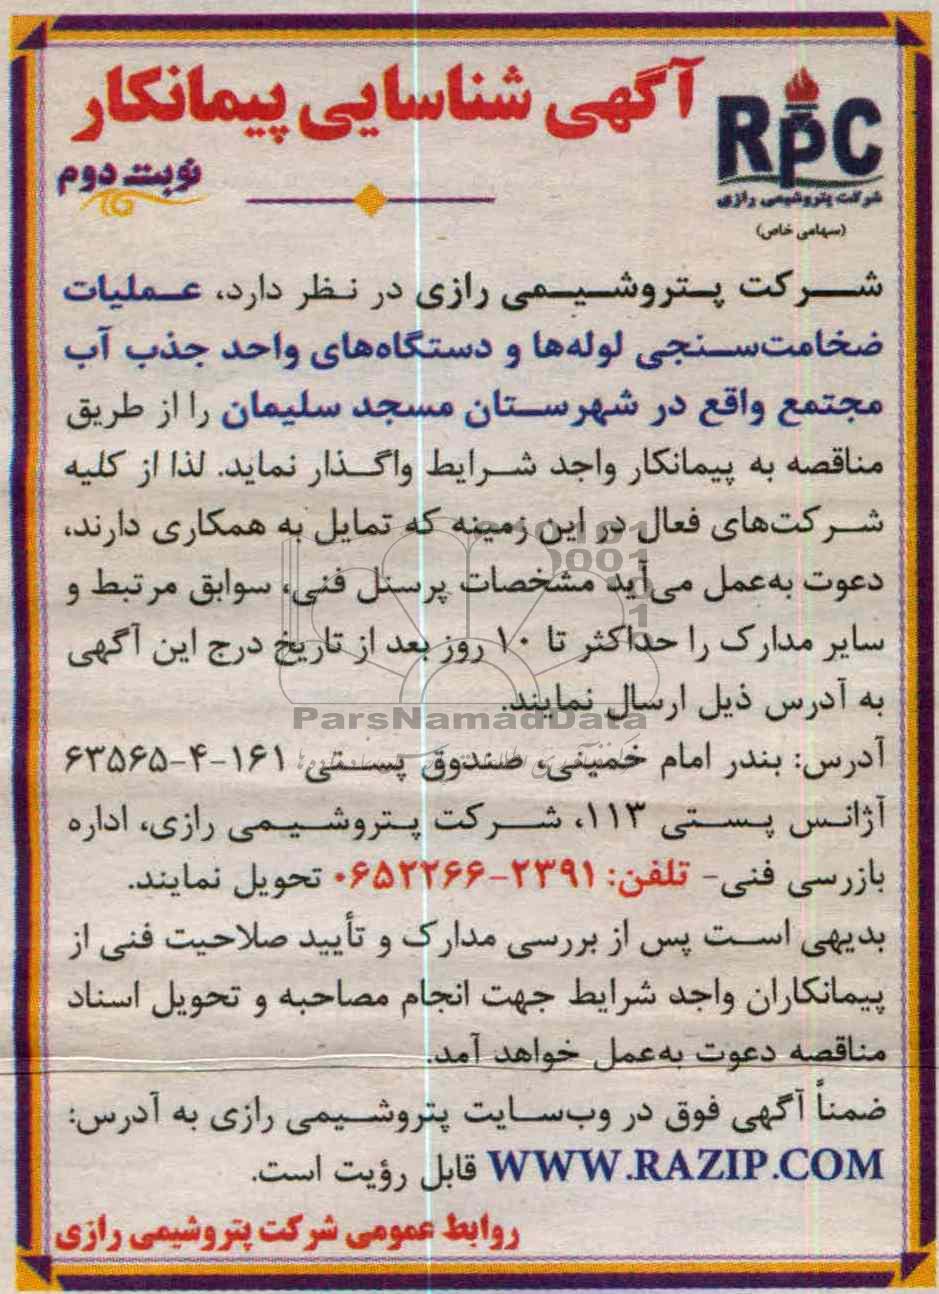 آگهی شناسایی پیمانکار
RPC
شرکت پتروشیمی رازی
(سهامی خاص)
نوبت دوم
شرکت پتروشیمی رازی در نظر دارد، عملیات
ضخامت‌سنجی لوله‌ها و دستگاه‌های واحد جذب آب
مجتمع واقع در شهرستان مسجد سلیمان را از طریق
مناقصه به پیمانکار واجد شرایط واگذار نماید. لذا از کلیه
شرکت‌های فعال در این زمینه که تمایل به همکاری دارند،
دعوت به‌عمل می‌آید مشخصات پرسنل فنی، سوابق مرتبط و
سایر مدارک را حداکثر تا ۱۰ روز بعد از تاریخ درج این آگهی
به آدرس ذیل ارسال نمایند.
ParsNamadData
آدرس: بندر امام خمینی، صندوق پستی ۱۶۱-۴-۶۳۵۶۵
آژانس پستی ۱۱۳، شرکت پتروشیمی رازی، اداره
بازرسی فنی- تلفن: ۲۳۹۱-۰۶۵۲۲۶۶ تحویل نمایند.
بدیهی است پس از بررسی مدارک و تأیید صلاحیت فنی از
پیمانکاران واجد شرایط جهت انجام مصاحبه و تحویل اسناد
مناقصه دعوت به‌عمل خواهد آمد.
ضمناً آگهی فوق در وب‌سایت پتروشیمی رازی به آدرس:
WWW.RAZIP.COM قابل رؤیت است.
روابط عمومی شرکت پتروشیمی رازی